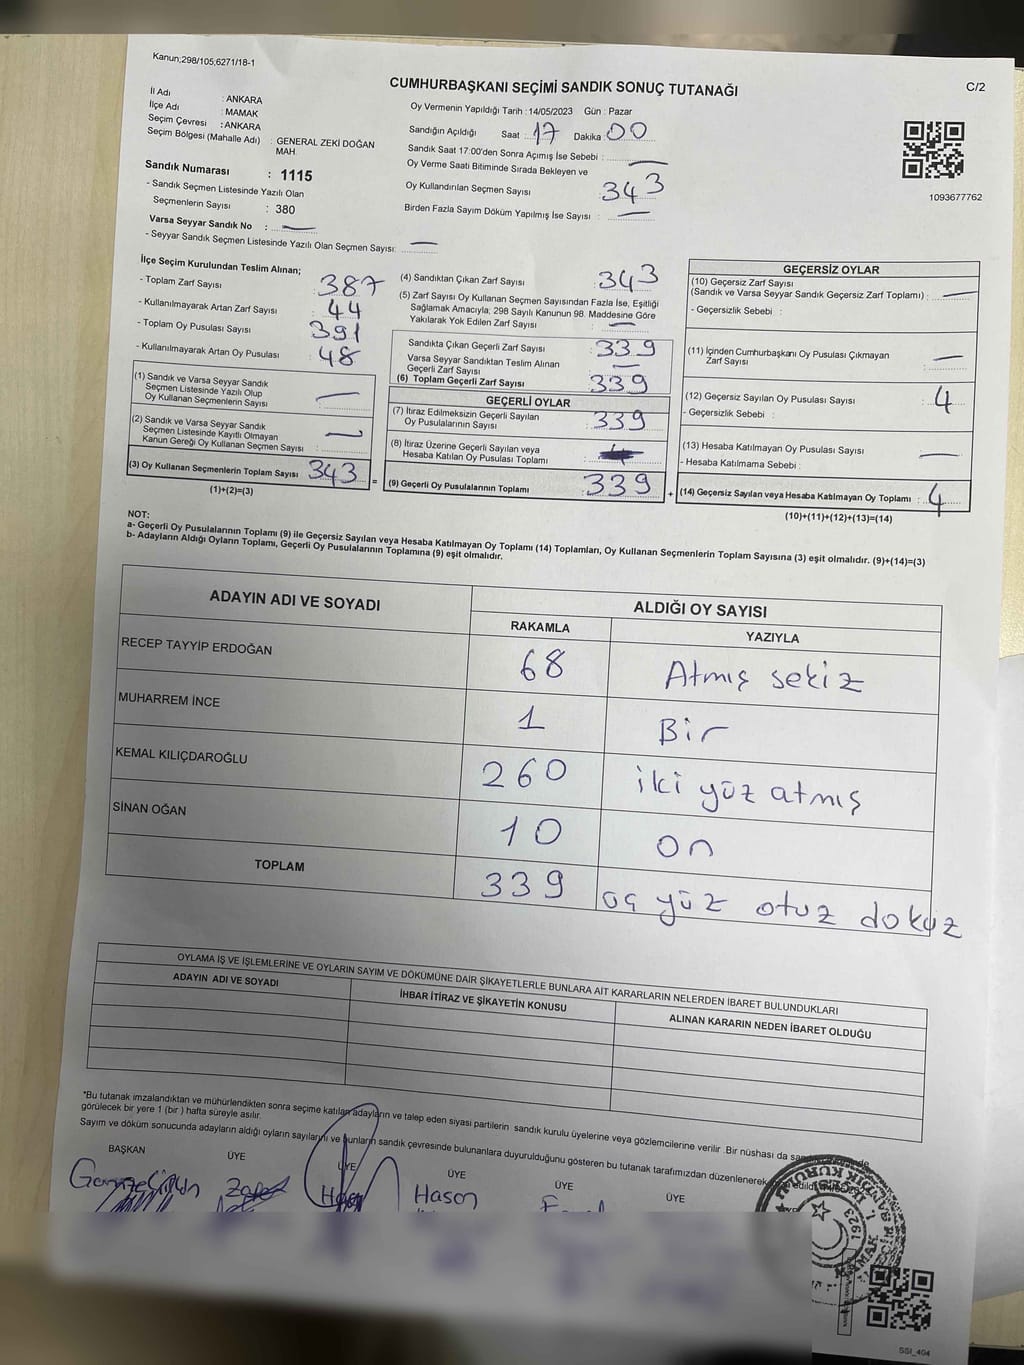 Kanun;298/105;6271/18-1
C/2
CUMHURBAŞKANI SEÇİMİ SANDIK SONUÇ TUTANAĞI
İl Adı : ANKARA
İlçe Adı : MAMAK
Seçim Çevresi : ANKARA
Seçim Bölgesi (Mahalle Adı) : GENERAL ZEKİ DOĞAN
MAH.
Sandık Numarası : 1115
- Sandık Seçmen Listesinde Yazılı Olan
Seçmenlerin Sayısı : 380
Varsa Seyyar Sandık No : —
- Seyyar Sandık Seçmen Listesinde Yazılı Olan Seçmen Sayısı: —
Oy Vermenin Yapıldığı Tarih : 14/05/2023 Gün : Pazar
Sandığın Açıldığı Saat : 17 Dakika 00
Sandık Saat 17:00'den Sonra Açımış İse Sebebi : —
Oy Verme Saati Bitiminde Sırada Bekleyen ve
Oy Kullandırılan Seçmen Sayısı : 343
Birden Fazla Sayım Döküm Yapılmış İse Sayısı : —
1093677762
İlçe Seçim Kurulundan Teslim Alınan;
- Toplam Zarf Sayısı : 387
- Kullanılmayarak Artan Zarf Sayısı : 44
- Toplam Oy Pusulası Sayısı : 391
- Kullanılmayarak Artan Oy Pusulası : 48
(1) Sandık ve Varsa Seyyar Sandık
Seçmen Listesinde Yazılı Olup
Oy Kullanan Seçmenlerin Sayısı : —
(2) Sandık ve Varsa Seyyar Sandık
Seçmen Listesinde Kayıtlı Olmayan
Kanun Gereği Oy Kullanan Seçmen Sayısı : —
(3) Oy Kullanan Seçmenlerin Toplam Sayısı : 343
(1)+(2)=(3)
=
(4) Sandıktan Çıkan Zarf Sayısı : 343
(5) Zarf Sayısı Oy Kullanan Seçmen Sayısından Fazla İse, Eşitliği
Sağlamak Amacıyla; 298 Sayılı Kanunun 98. Maddesine Göre
Yakılarak Yok Edilen Zarf Sayısı : —
Sandıkta Çıkan Geçerli Zarf Sayısı : 339
Varsa Seyyar Sandıktan Teslim Alınan
Geçerli Zarf Sayısı : —
(6) Toplam Geçerli Zarf Sayısı : 339
GEÇERLİ OYLAR
(7) İtiraz Edilmeksizin Geçerli Sayılan
Oy Pusulalarının Sayısı : 339
(8) İtiraz Üzerine Geçerli Sayılan veya
Hesaba Katılan Oy Pusulası Toplamı :
(9) Geçerli Oy Pusulalarının Toplamı : 339
+
GEÇERSİZ OYLAR
(10) Geçersiz Zarf Sayısı
(Sandık ve Varsa Seyyar Sandık Geçersiz Zarf Toplamı) : —
- Geçersizlik Sebebi :
(11) İçinden Cumhurbaşkanı Oy Pusulası Çıkmayan
Zarf Sayısı : —
(12) Geçersiz Sayılan Oy Pusulası Sayısı : 4
- Geçersizlik Sebebi :
(13) Hesaba Katılmayan Oy Pusulası Sayısı : —
- Hesaba Katılmama Sebebi :
(14) Geçersiz Sayılan veya Hesaba Katılmayan Oy Toplamı : 4
(10)+(11)+(12)+(13)=(14)
NOT:
a- Geçerli Oy Pusulalarının Toplamı (9) ile Geçersiz Sayılan veya Hesaba Katılmayan Oy Toplamı (14) Toplamları, Oy Kullanan Seçmenlerin Toplam Sayısına (3) eşit olmalıdır. (9)+(14)=(3)
b- Adayların Aldığı Oyların Toplamı, Geçerli Oy Pusulalarının Toplamına (9) eşit olmalıdır.
ADAYIN ADI VE SOYADI
ALDIĞI OY SAYISI
RAKAMLA YAZIYLA
RECEP TAYYİP ERDOĞAN 68 Atmış sekiz
MUHARREM İNCE 1 Bir
KEMAL KILIÇDAROĞLU 260 iki yüz atmış
SİNAN OĞAN 10 on
TOPLAM 339 üç yüz otuz dokuz
OYLAMA İŞ VE İŞLEMLERİNE VE OYLARIN SAYIM VE DÖKÜMÜNE DAİR ŞİKAYETLERLE BUNLARA AİT KARARLARIN NELERDEN İBARET BULUNDUKLARI
ADAYIN ADI VE SOYADI
İHBAR İTİRAZ VE ŞİKAYETİN KONUSU
ALINAN KARARIN NEDEN İBARET OLDUĞU
*Bu tutanak imzalandıktan ve mühürlendikten sonra seçime katılan adayların ve talep eden siyasi partilerin sandık kurulu üyelerine veya gözlemcilerine verilir. Bir nüshası da
görülecek bir yere 1 (bir) hafta süreyle asılır.
Sayım ve döküm sonucunda adayların aldığı oyların sayılarını ve bunların sandık çevresinde bulunanlara duyurulduğunu gösteren bu tutanak tarafımızdan düzenlenerek
BAŞKAN ÜYE ÜYE ÜYE ÜYE ÜYE
Hasan
1923
SSI_404